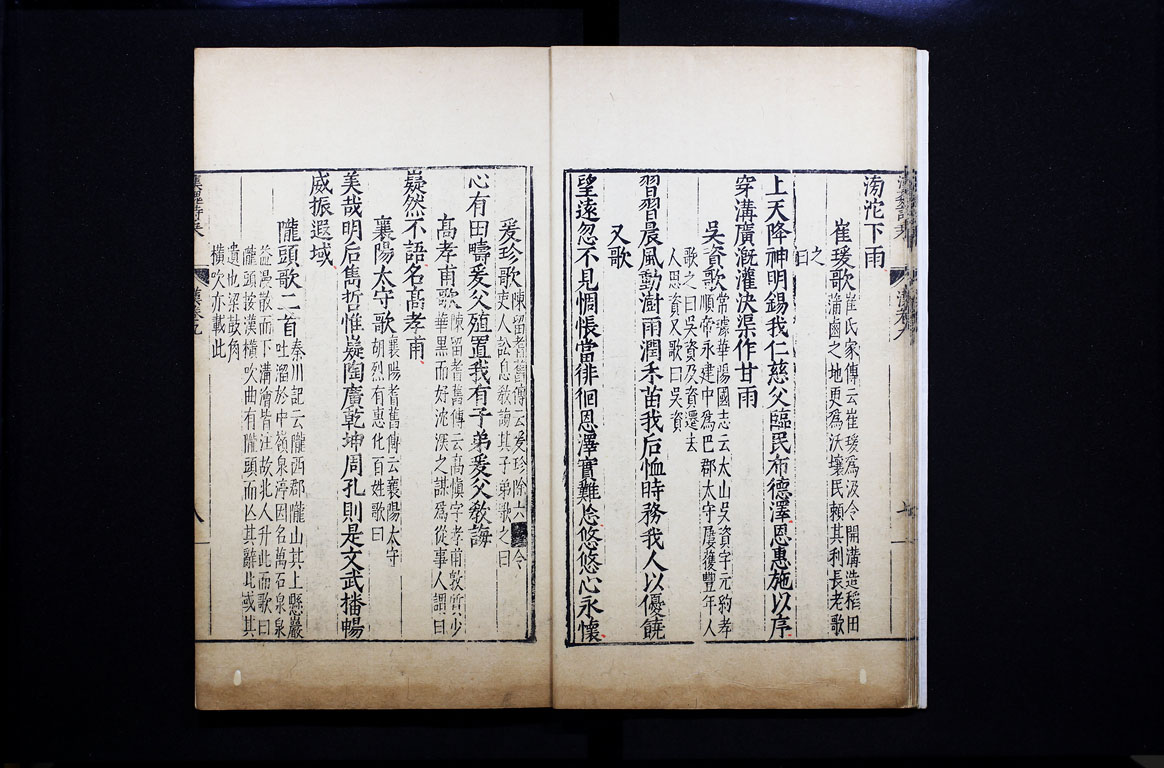 滂沱下雨
崔瑗歌
崔氏家傳云崔瑗爲汲令開溝造稻田
蒲鹵之地更爲沃壤民賴其利長老歌
之
曰
上天降神明錫我仁慈父臨民布德澤恩惠施以序
穿溝廣漑灌決渠作甘雨
吳資歌
常璩華陽國志云太山吳資字元約孝
順帝永建中爲巴郡太守屢獲豐年人
歌之曰吳資及資遷去
人思資又歌曰吳資
習習晨風動澍雨潤禾苗我后恤時務我人以優饒
又歌
望遠忽不見惆悵當徘徊恩澤實難忘悠悠心永懷
爰珍歌
陳留耆舊傳云爰珍除六令
吏人訟息教誨其子弟歌之曰
心有田疇爰父殖置我有子弟爰父教誨
高孝甫歌
陳留耆舊傳云高愼字孝甫敦質少
華黑而好沈深之謀爲從事人謂曰
嶷然不語名高孝甫
襄陽太守歌
襄陽耆舊傳云襄陽太守
胡烈有惠化百姓歌曰
美哉明后雋哲惟嶷陶廣乾坤周孔則是文武播暢
威振遐域
隴頭歌二首
秦川記云隴西郡隴山其上懸巖
吐溜於中嶺泉渟因名萬石泉泉
益漫散而下溝澮皆注故北人升此而歌曰
隴頭按漢橫吹曲有隴頭而亡其辭此或其
遺也梁鼓角
橫吹亦載此
八